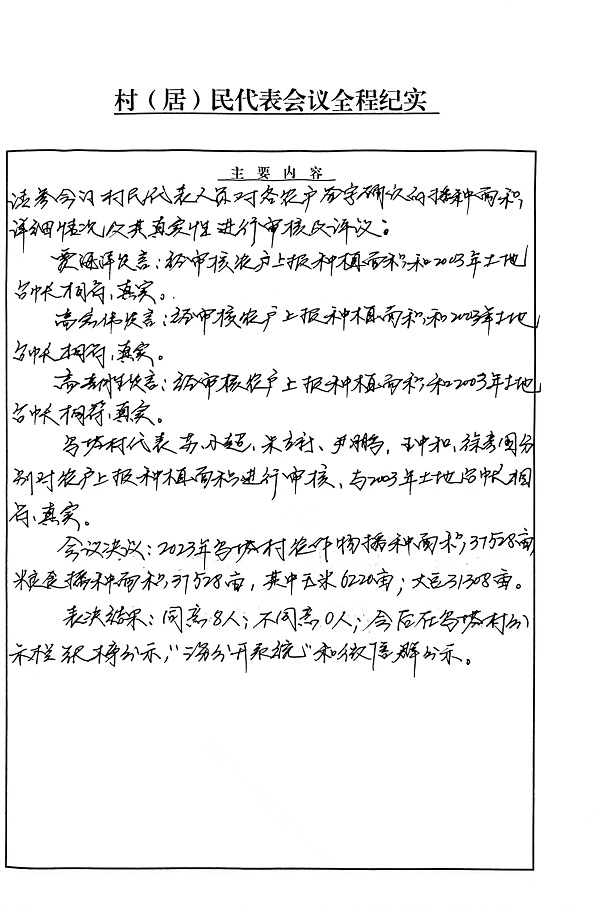 村（居）民代表会议全程纪实
主要内容
请参会的村民代表人员对各农户签字确认的播种面积
详细情况以及其真实性进行审核及评议。
发言：经审核农户上报种植面积和2003年土地
台帐相符，真实。
高宏伟发言：经审核农户上报种植面积和2003年土地
台帐相符，真实。
高 发言：经审核农户上报种植面积和2003年土地
台帐相符，真实。
村代表苏小超、朱 、尹鹏、王中和、徐 国分
别对农户上报种植面积进行审核，与2003年土地台帐相
符，真实。
会议决议：2023年 村农作物播种面积37528亩，
粮食播种面积37528亩，其中玉米6220亩；大豆31308亩。
表决结果：同意8人；不同意0人；会后在 村公
示栏张榜公示，“ 公开系统”和微信群公示。